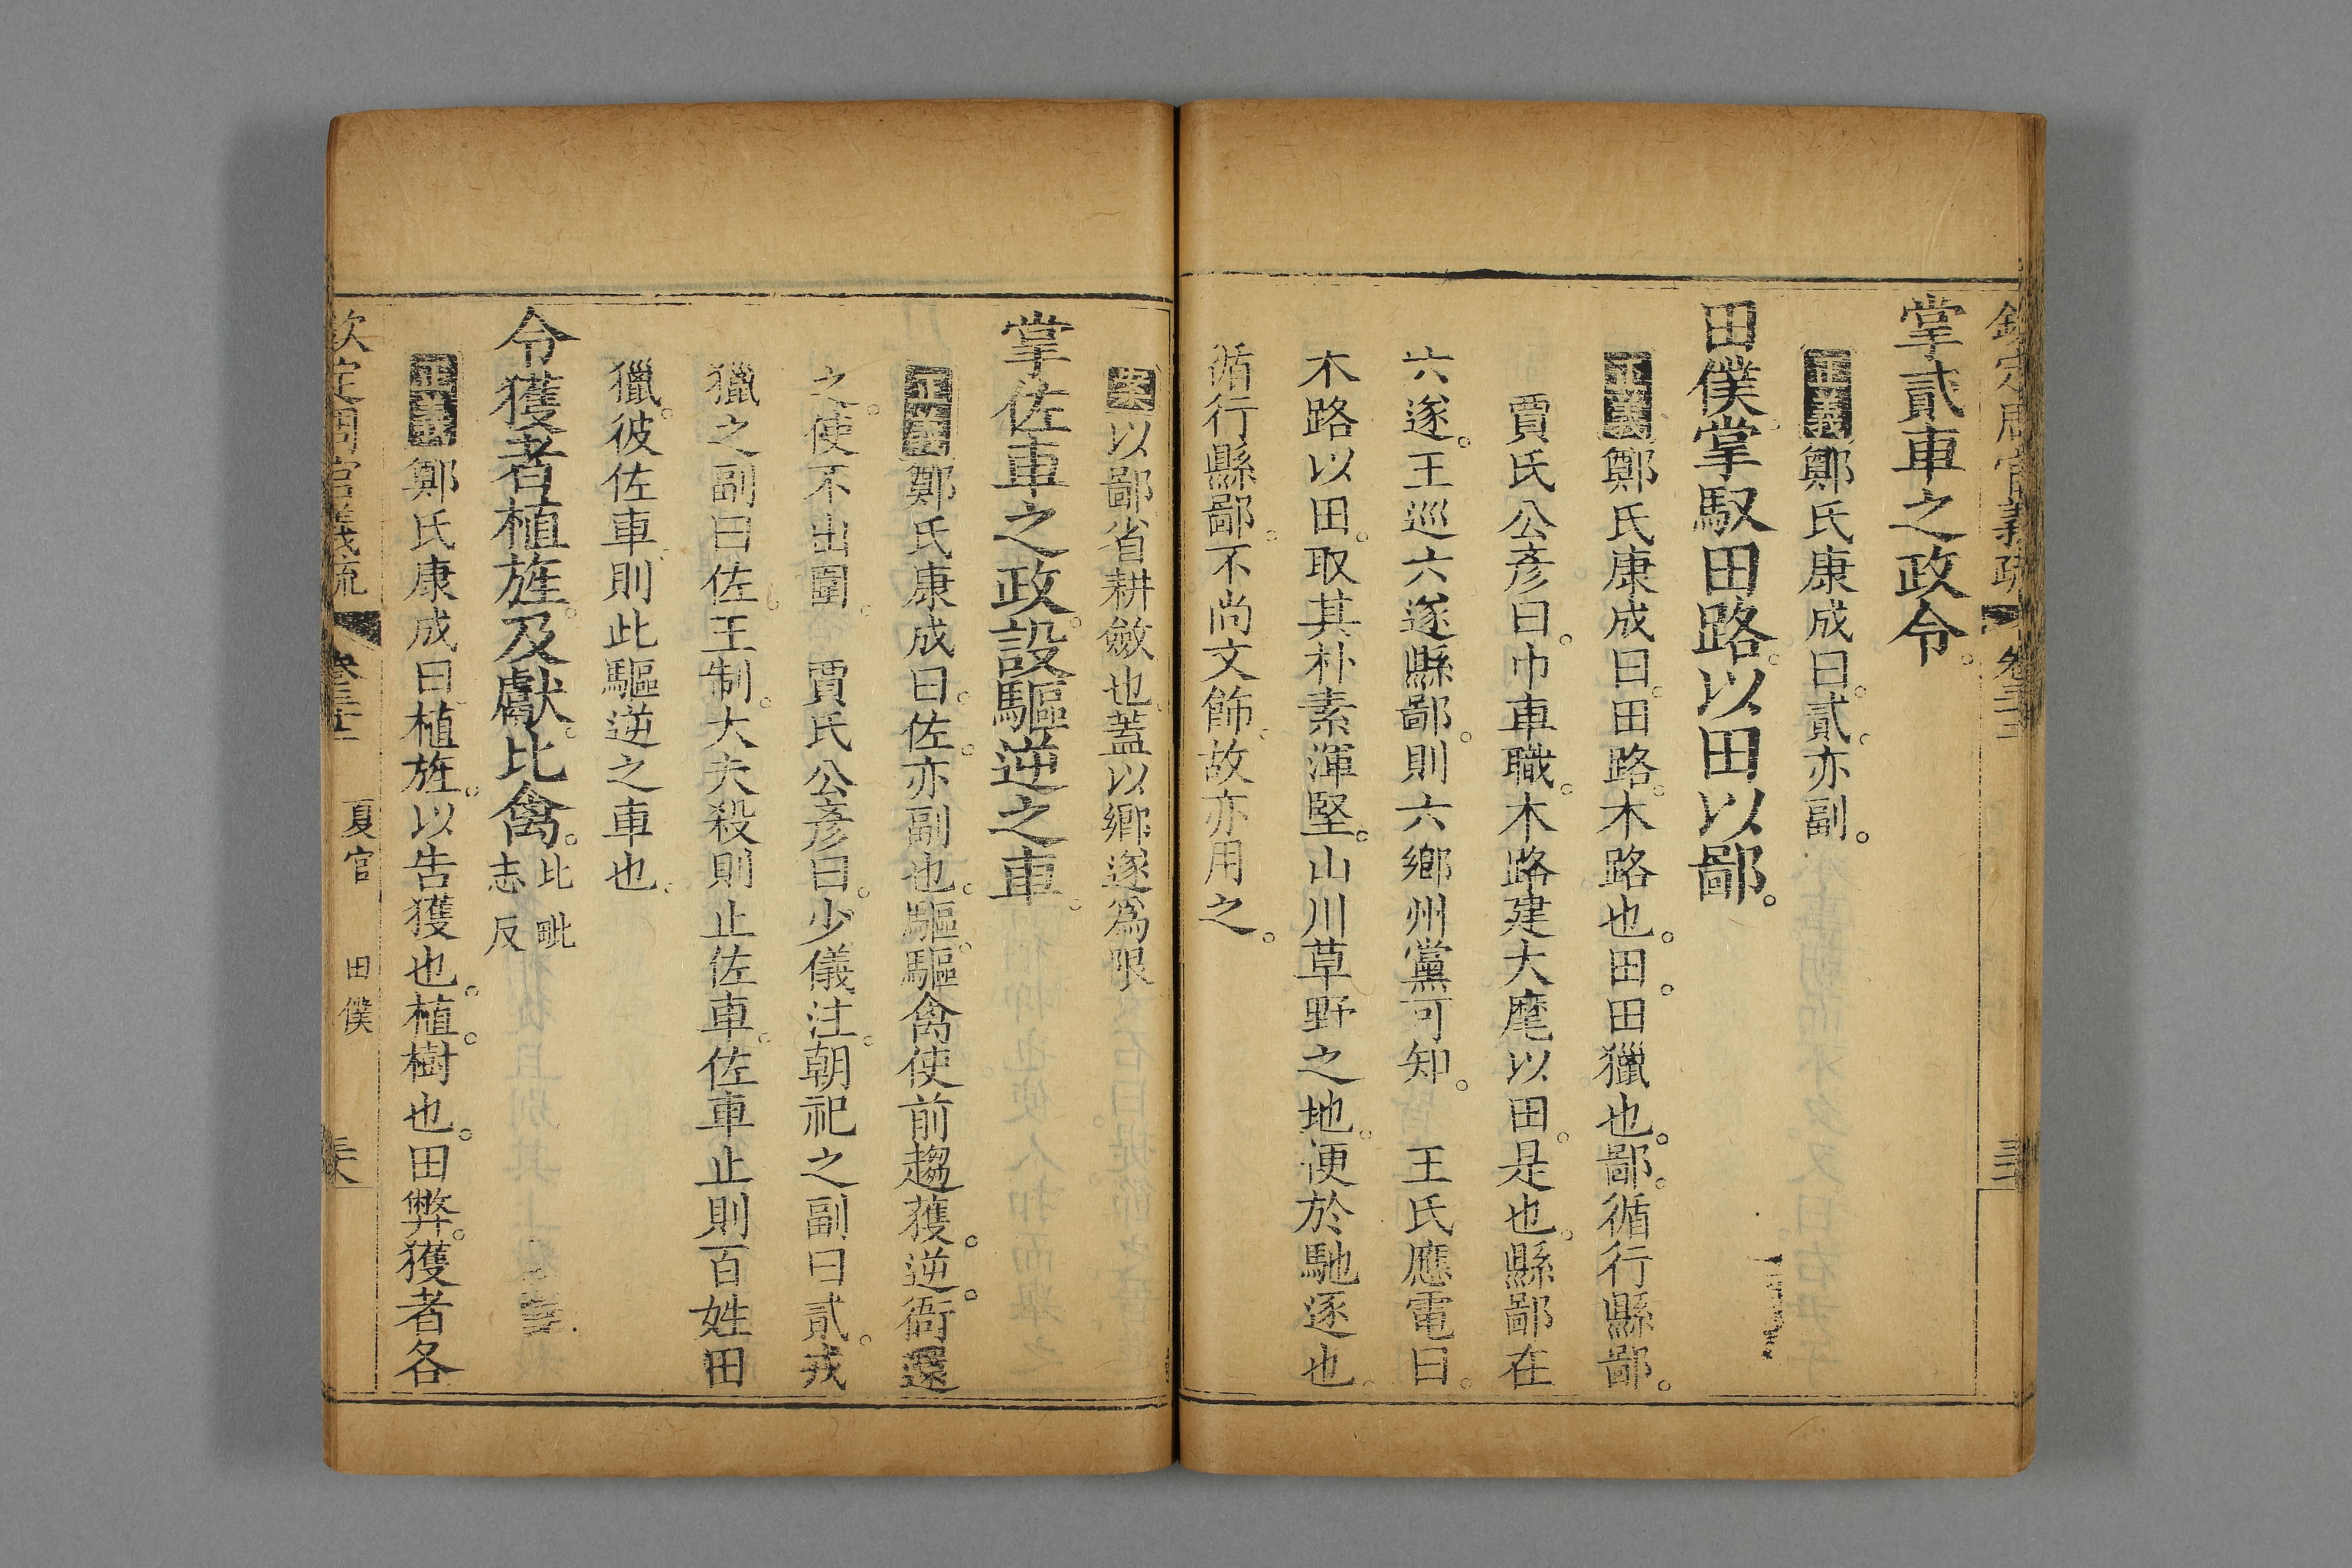 欽定周官義疏 卷三十二
掌貳車之政令。
正義鄭氏康成曰。貳。亦副。
田僕。掌馭田路。以田以鄙。
正義鄭氏康成曰。田路。木路也。田。田獵也。鄙。循行縣鄙。
賈氏公彥曰。巾車職。木路建大麾以田。是也。縣鄙在
六遂。王巡六遂縣鄙。則六鄉州黨可知。 王氏應電曰。
木路以田。取其朴素渾堅。山川草野之地。便於馳逐也。
循行縣鄙。不尚文飾。故亦用之。
案以鄙省耕斂也。蓋以鄉遂為限
掌佐車之政。設驅逆之車。
正義鄭氏康成曰。佐。亦副也。驅。驅禽使前趨獲。逆。衙還
之。使不出圍。 賈氏公彥曰。少儀注。朝祀之副曰貳。戎
獵之副曰佐。王制。大夫殺則止佐車。佐車止則百姓田
獵。彼佐車。則此驅逆之車也。
令獲者植旌。及獻。比禽。比毗志反
正義鄭氏康成曰植旌。以告獲也。植。樹也。田弊。獲者各
欽定周官義疏 卷三十二 夏官 田僕